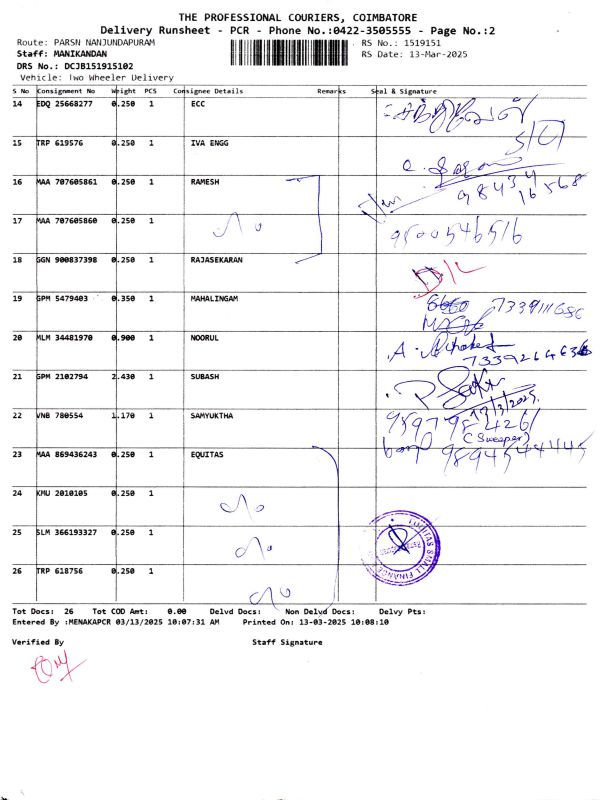 THE PROFESSIONAL COURIERS, COIMBATORE
Delivery Runsheet - PCR - Phone No.:0422-3505555 - Page No.:2
Route: PARSN NANJUNDAPURAM RS No.: 1519151
Staff: MANIKANDAN RS Date: 13-Mar-2025
DRS No.: DCJB151915102
Vehicle: Two Wheeler Delivery
S No Consignment No Weight PCS Consignee Details Remarks Seal & Signature
14 EDQ 25668277 0.250 1 ECC
15 TRP 619576 0.250 1 IVA ENGG
16 MAA 707605861 0.250 1 RAMESH
98434
16568
17 MAA 707605860 0.250 1
9500546516
18 GGN 900837398 0.250 1 RAJASEKARAN
D/L
19 GPM 5479403 0.350 1 MAHALINGAM
20 MLM 34481970 0.900 1 NOORUL
21 GPM 2102794 2.430 1 SUBASH
13/3/2025
22 VNB 780554 1.170 1 SAMYUKTHA
9597984261
(Sweeper)
23 MAA 869436243 0.250 1 EQUITAS
24 KMU 2010105 0.250 1
25 SLM 366193327 0.250 1
EQUITAS SMALL FINANCE
26 TRP 618756 0.250 1
Tot Docs: 26 Tot COD Amt: 0.00 Delvd Docs: Non Delvd Docs: Delvy Pts:
Entered By :MENAKAPCR 03/13/2025 10:07:31 AM Printed On: 13-03-2025 10:08:10
Verified By Staff Signature